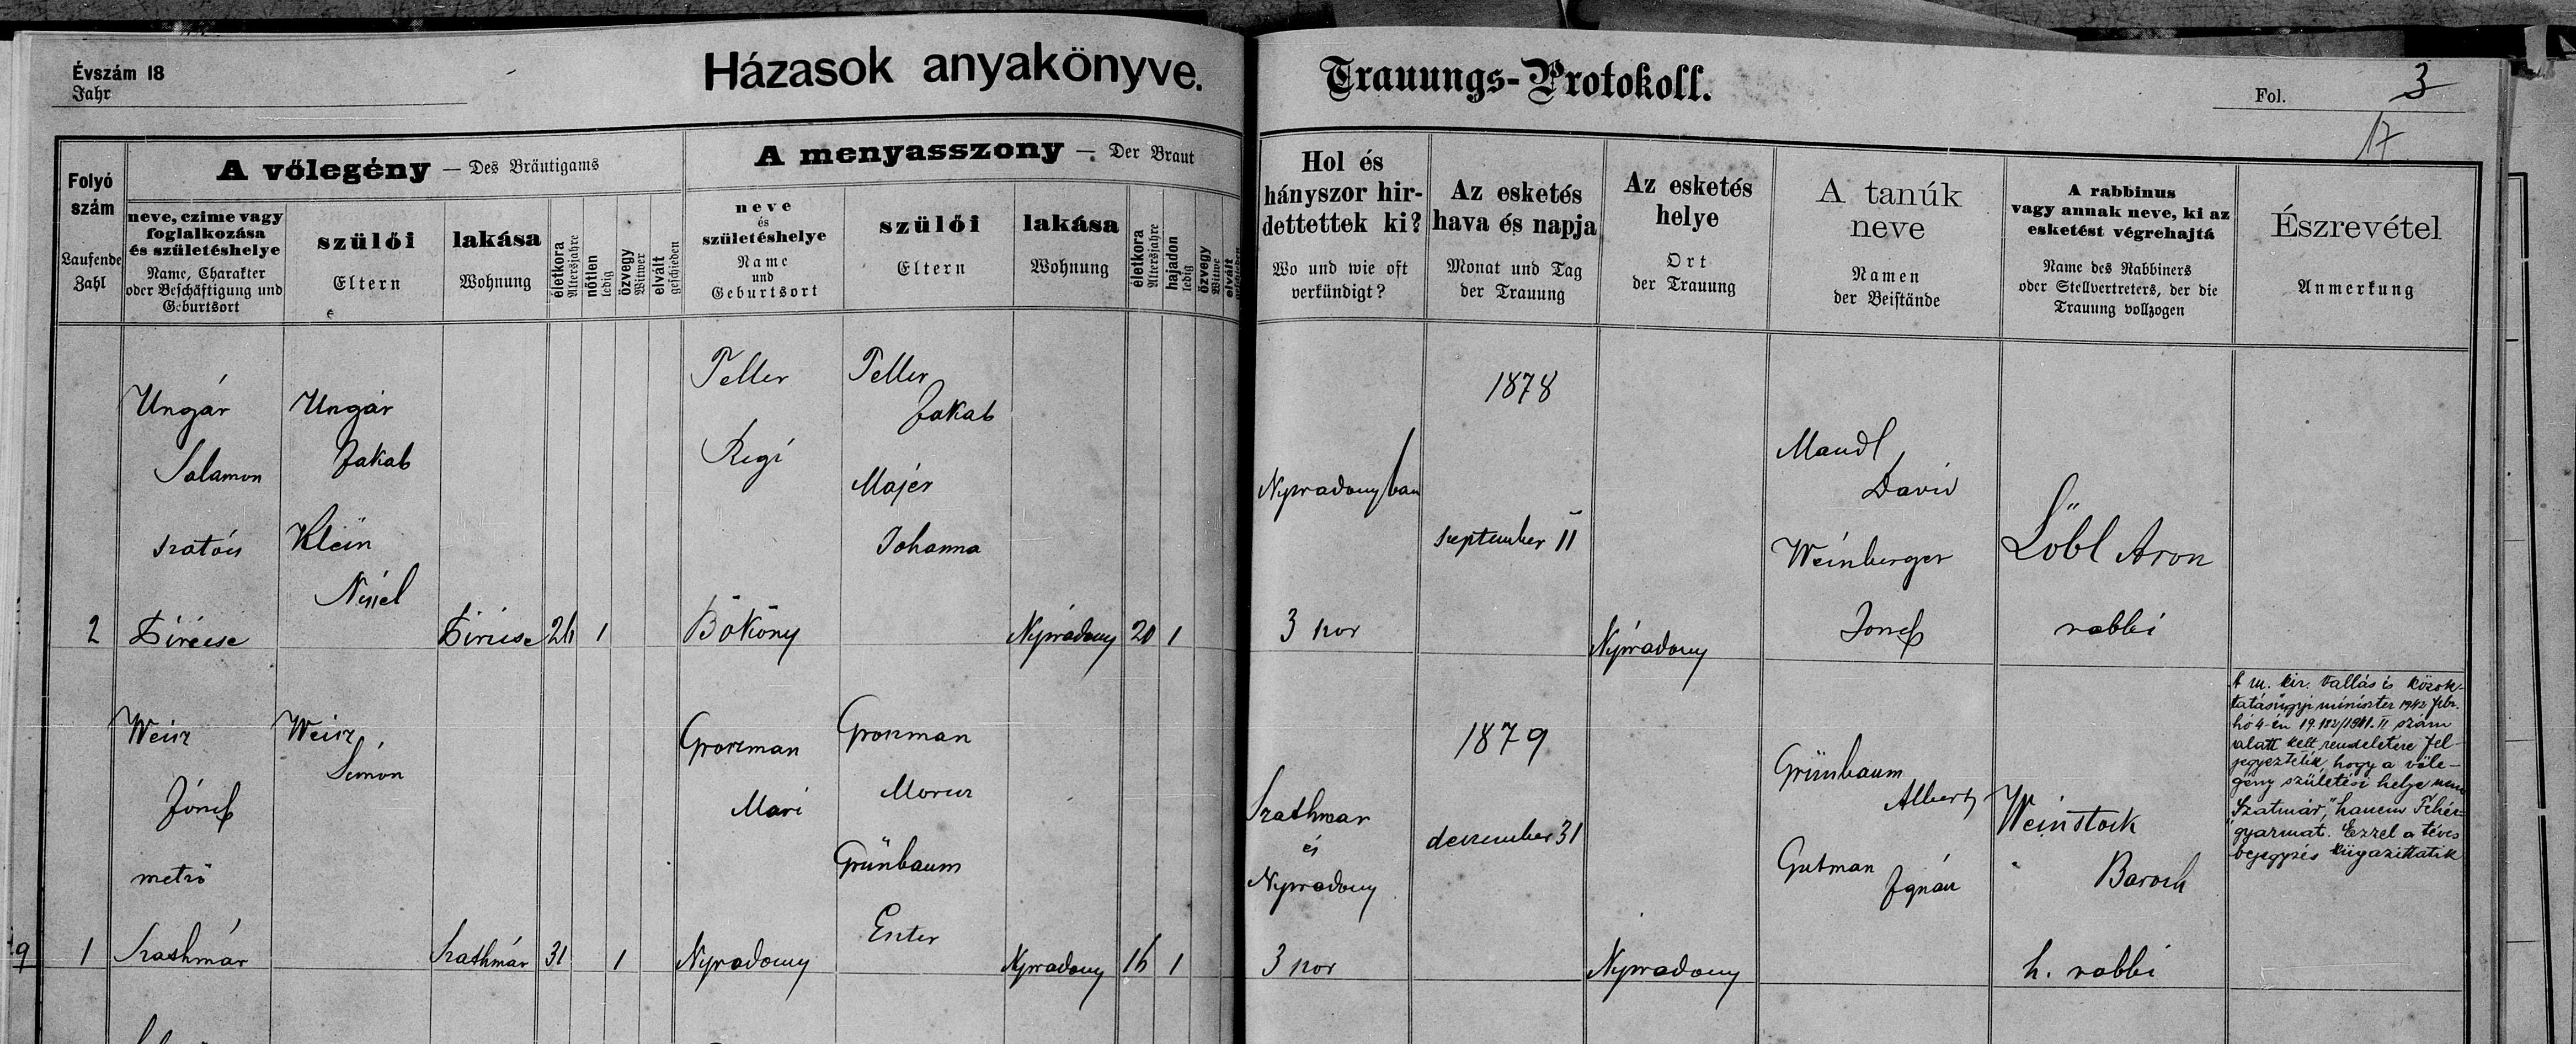 Évszám 18
Jahr
Házasok anyakönyve.
Trauungs-Protokoll.
Fol. 3
17
Folyó szám
Laufende Zahl
A vőlegény — Des Bräutigams
neve, czime vagy foglalkozása és születéshelye
Name, Charakter oder Beschäftigung und Geburtsort
szülői
Eltern
lakása
Wohnung
életkora
Altersjahre
nőtlen
ledig
özvegy
Wittwer
elvált
geschieden
A menyasszony — Der Braut
neve és születéshelye
Name und Geburtsort
szülői
Eltern
lakása
Wohnung
életkora
Altersjahre
hajadon
ledig
özvegy
Wittwe
elvált
Hol és hányszor hirdettettek ki?
Wo und wie oft verkündigt?
Az esketés hava és napja
Monat und Tag der Trauung
Az esketés helye
Ort der Trauung
A tanúk neve
Namen der Beistände
A rabbinus vagy annak neve, ki az esketést végrehajtá
Name des Rabbiners oder Stellvertreters, der die Trauung vollzogen
Észrevétel
Anmerkung
2
Ungár
Salamon
szatócs
Ungár
Jakab
Klein
26
1
Teller
Regi
Bököny
Teller
Jakab
Májer
Johanna
Nyiradony
20
1
Nyiradonyban
3 szor
1878
september 11
Nyiradony
Mandl
David
Weinberger
Jossef
Löbl Aron
rabbi
9
1
Weisz
Jóssef
metsö
Szathmár
Weisz
Simon
Szathmár
31
1
Groszman
Mari
Nyiradony
Groszman
Moricz
Grünbaum
Eszter
Nyiradony
16
1
Szathmar
és
Nyiradony
3 szor
1879
deczember 31
Nyiradony
Grünbaum
Albert
Gutman
Ignácz
Weinstock
Baroch
h. rabbi
A m. kir. vallás és közok-
tatásügyi miniszter 1942 febr.
hó 4-én 19.182/1941. II szám
alatt kelt rendeletére fel-
jegyeztetik, hogy a vőle-
gény születési helye nem
"Szatmár", hanem Fehér-
gyarmat. Ezzel a téves
bejegyzés kiigazittatik